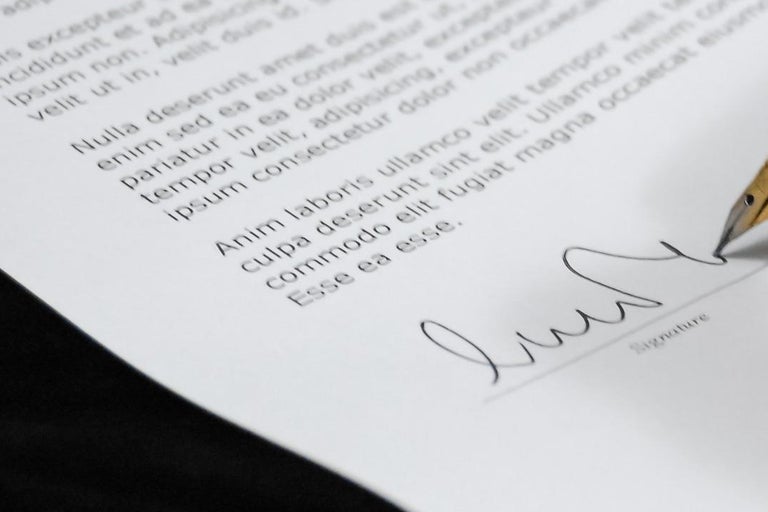 excepteur
incididunt et ad ea
ipsum non. Adipisicing
velit ut in, velit duis id.
Nulla deserunt amet duis est
enim sed ea eu consectetur ut
pariatur in ea dolor velit, excepteur
tempor velit, adipisicing, excepteur
ipsum consectetur dolor non occaecat
Anim laboris ullamco velit tempor velit
culpa deserunt sint elit. Ullamco minim
commodo elit fugiat magna occaecat
Esse ea esse.
Signature